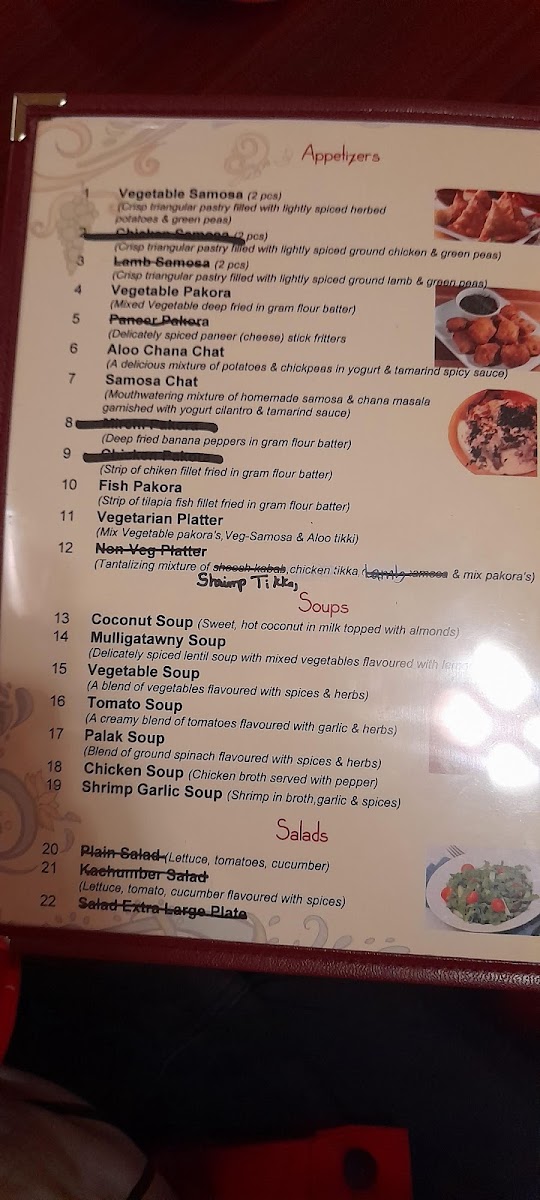 Appetizers
1 Vegetable Samosa (2 pcs)
(Crisp triangular pastry filled with lightly spiced herbed
potatoes & green peas)
2 Chicken Samosa (2 pcs)
(Crisp triangular pastry filled with lightly spiced ground chicken & green peas)
3 Lamb Samosa (2 pcs)
(Crisp triangular pastry filled with lightly spiced ground lamb & green peas)
4 Vegetable Pakora
(Mixed Vegetable deep fried in gram flour batter)
5 Paneer Pakora
(Delicately spiced paneer (cheese) stick fritters
6 Aloo Chana Chat
(A delicious mixture of potatoes & chickpeas in yogurt & tamarind spicy sauce)
7 Samosa Chat
(Mouthwatering mixture of homemade samosa & chana masala
garnished with yogurt cilantro & tamarind sauce)
8 Mirchi Pakora
(Deep fried banana peppers in gram flour batter)
9 Chicken Pakora
(Strip of chiken fillet fried in gram flour batter)
10 Fish Pakora
(Strip of tilapia fish fillet fried in gram flour batter)
11 Vegetarian Platter
(Mix Vegetable pakora's, Veg-Samosa & Aloo tikki)
12 Non Veg Platter
(Tantalizing mixture of sheesh kabab, chicken tikka, samosa & mix pakora's)
Shrimp Tikka,
Soups
13 Coconut Soup (Sweet, hot coconut in milk topped with almonds)
14 Mulligatawny Soup
(Delicately spiced lentil soup with mixed vegetables flavoured with
15 Vegetable Soup
(A blend of vegetables flavoured with spices & herbs)
16 Tomato Soup
(A creamy blend of tomatoes flavoured with garlic & herbs)
17 Palak Soup
(Blend of ground spinach flavoured with spices & herbs)
18 Chicken Soup (Chicken broth served with pepper)
19 Shrimp Garlic Soup (Shrimp in broth,garlic & spices)
Salads
20 Plain Salad (Lettuce, tomatoes, cucumber)
21 Kachumber Salad
(Lettuce, tomato, cucumber flavoured with spices)
22 Salad Extra Large Plate